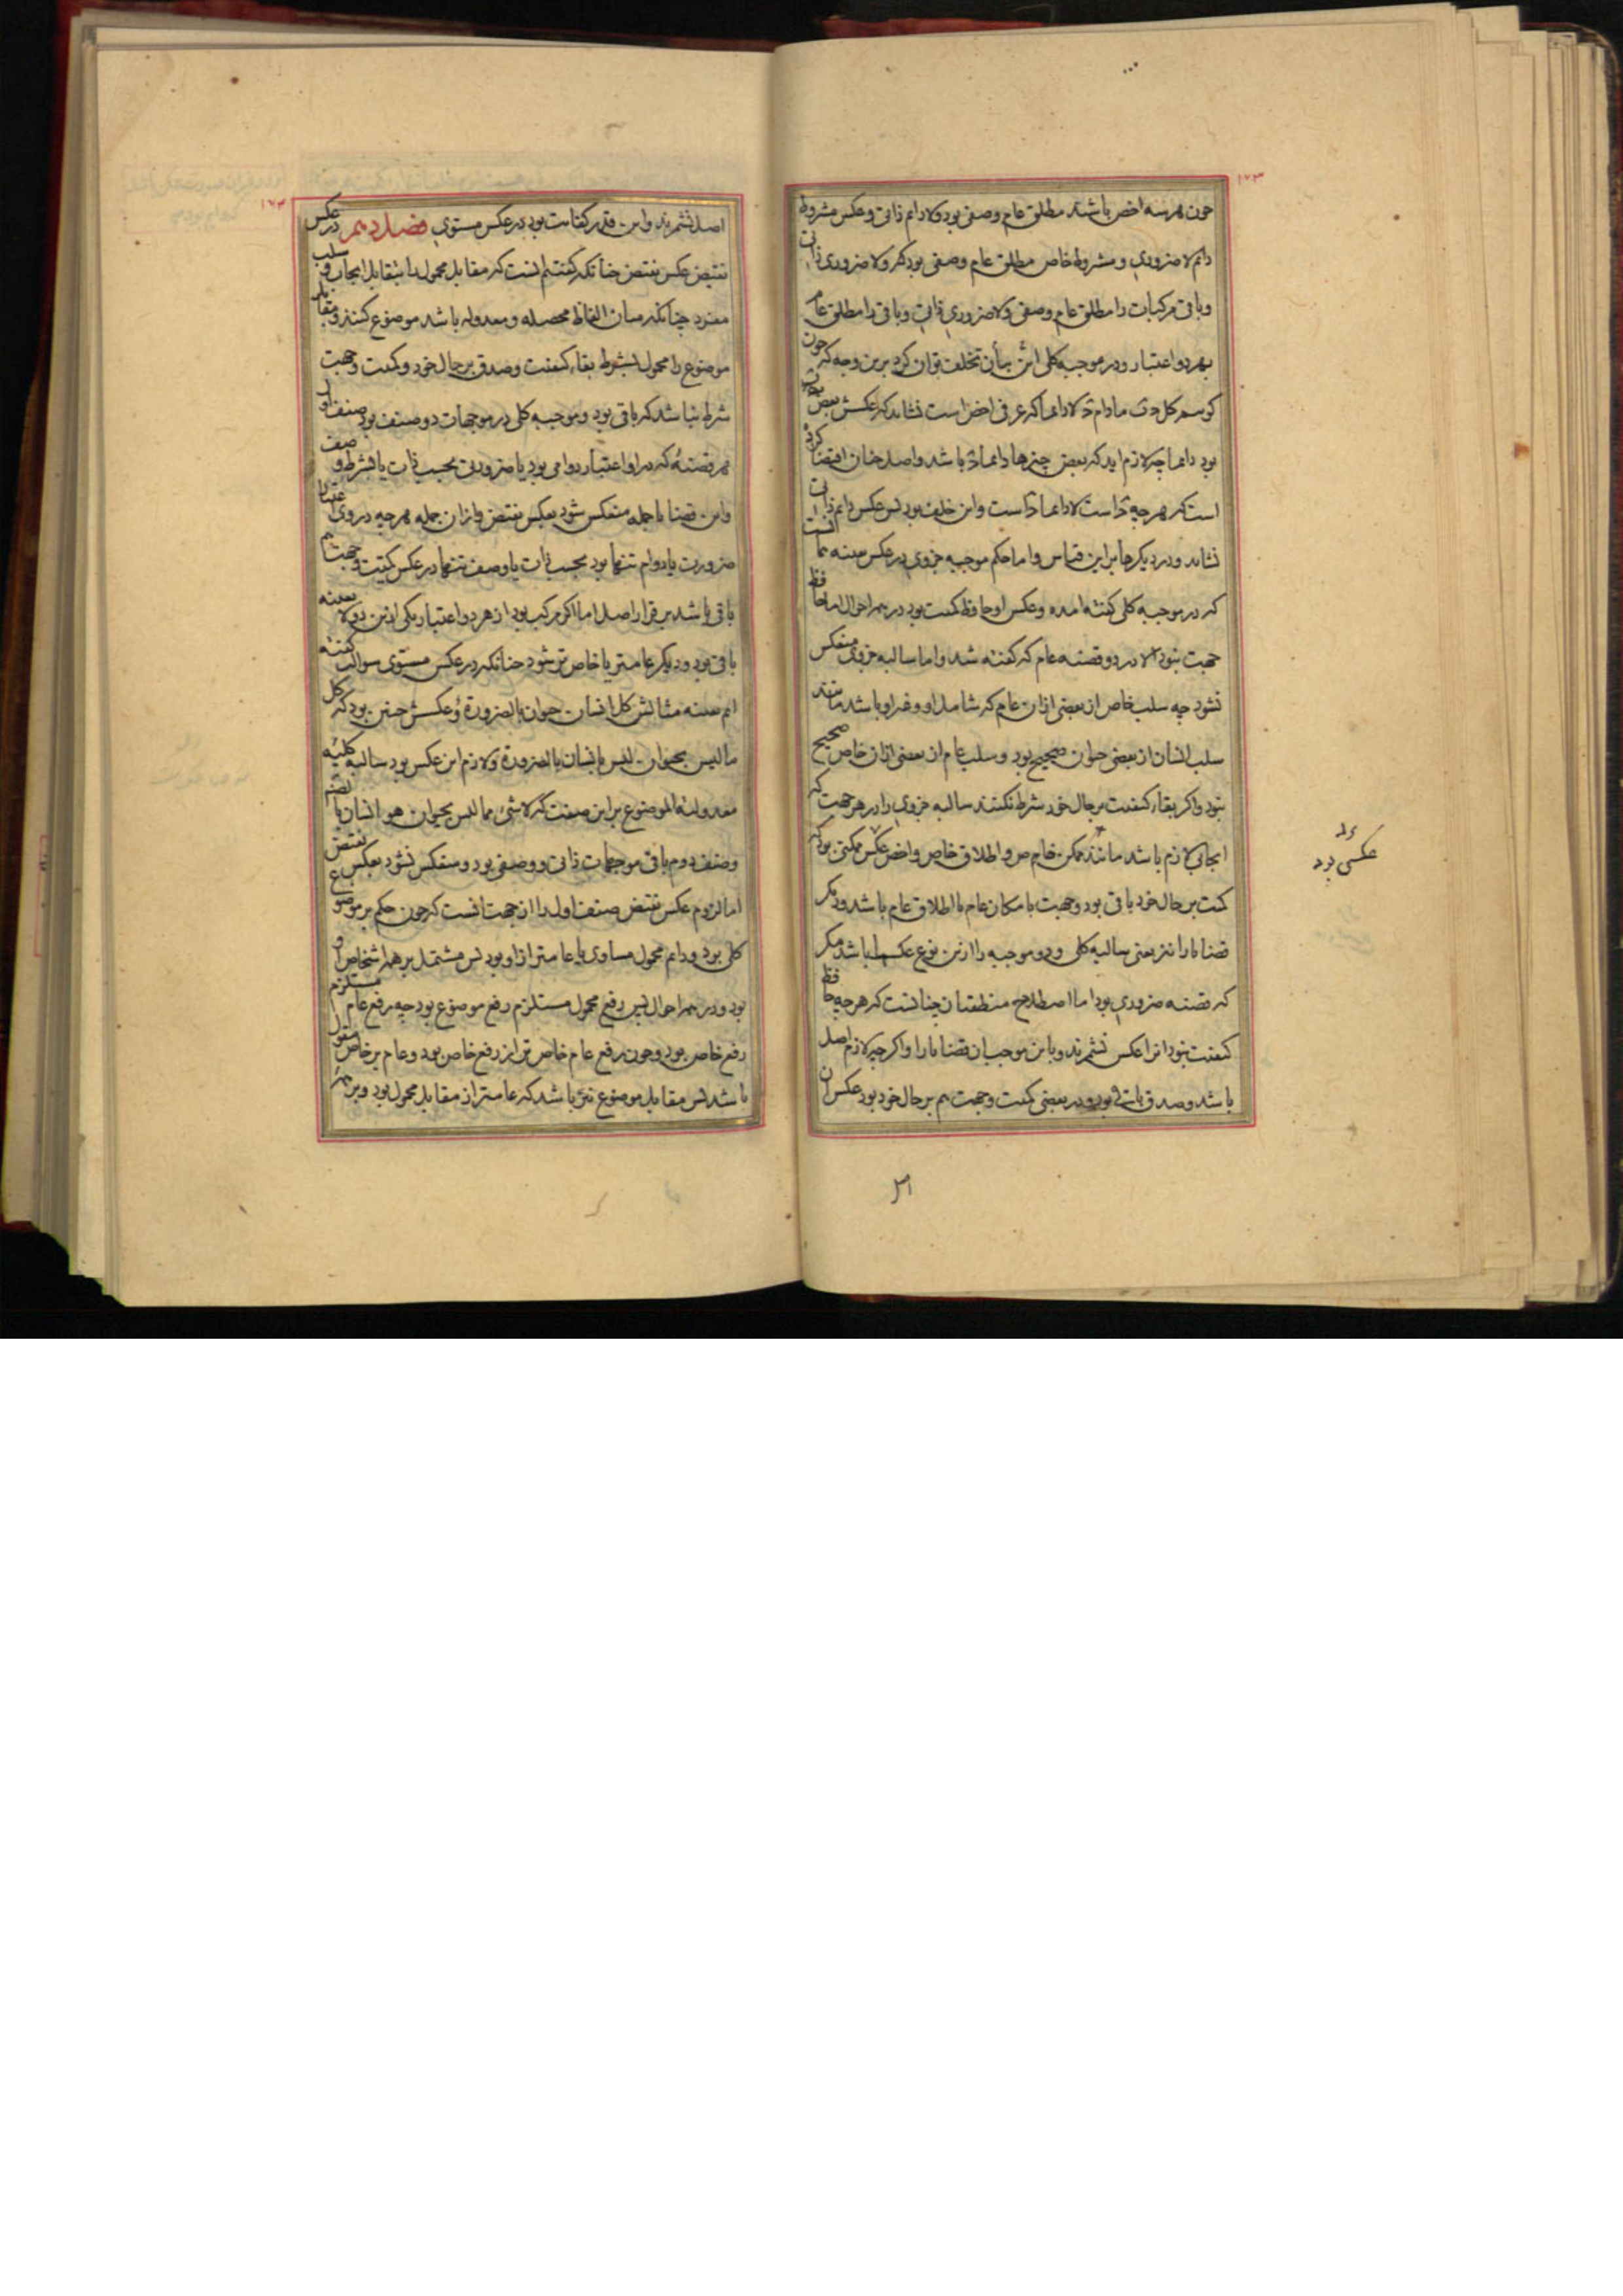 ۱۷۳
چون هر سه اخص باشند مطلق عام وصفی بود ولادایم ذاتی و عکس مشروط
دایم لاضروری و مشروط خاص مطلق عام وصفی بود کم ولا ضروری ذاتی
و باقی مرکبات را مطلق عام وصفی ولاضروری ذاتی و باقی را مطلق عام
بهر دو اعتبار و در موجبه کلی این بیان تخلف توان کرد برین وجه که چون
کوییم کل مادام لا دایما که عرفی اخص است نشاید که عکسش بعض
بود دایما چه لازم اید که بعض چیزها دایما باشد و اصل چنان اقتضا کرده
است که هر چه است لا دایما است و این خلف بود پس عکس دایم ذاتی
نشاید و در دیگرها برین قیاس و اما حکم موجبه جزوی در عکس بعینه همانست
که در موجبه کلی کفته امده و عکس او حافظ کمیت بود در همه احوال اما حافظ
جهت نبود الا در دو قضیه عام که کفته شد و اما سالبه جزوی منعکس
نشود چه سلب خاص از بعضی ازان عام که شامل او و غیر او باشد مانند
سلب انسان از بعضی حیوان صحیح بود و سلب عام از بعضی ازان خاص صحیح
نبود و اکر بقاء کیفیت بر حال خود شرط نکنند سالبه جزوی را در هر جهت که
ایجابی لازم باشد مانند ممکن خاص و اطلاق خاص و اخص عکس ممکنی بود که
کمیت بر حال خود باقی بود و جهت با مکان عام یا اطلاق عام باشد و دیکر
قضایا را نیز یعنی سالبه کلی و دو موجبه را ازین نوع عکسها باشد مکر
که قضیه ضروری بود اما اصطلاح منطقیان چنانست که هر چه حافظ
کیفیت نبود انرا عکس نشمرند و باین موجب ان قضایا را و اکر چه لازم اصل
باشد و صدق باقی بود و در بعضی کمیت و جهت هم بر حال خود بود عکس ان
عکسی بود
۱۷۳
اصل نشمرند و این قدر کفایت بود در عکس مستوی فصل دهم در عکس
نقیض عکس نقیض چنانکه کفتیم انست که مقابل محمول را بتقابل ایجاب و سلب
مفرد چنانکه میان الفاظ محصله و معدوله باشد موضوع کنند و مقابل
موضوع را محمول بشرط بقاء کیفیت و صدق بر حال خود و کمیت و جهت
شرط نباشد که باقی بود و موجبه کلی در موجهات دو صنف بود صنف اول
هر قضیهٔ که در او اعتبار دوامی بود یا ضرورتی بحسب ذات یا بشرط وصف
و این قضایا جمله منعکس شود بعکس نقیض و ازان جمله هر چه در وی اعتبار
ضرورت یا دوام تنها بود بحسب ذات یا وصف تنها در عکس کمیت و جهت هم
باقی باشد بر قرار اصل اما اکر مرکب بود از هر دو اعتبار یکی ازین دو لا بعینه
باقی بود و دیکر عامتر یا خاص تر شود چنانکه در عکس مستوی سوالب کفته
ایم بعینه مثالش کل انسان حیوان بالضرورة و عکسش چنین بود که کل
ما لیس بحیوان لیس بانسان بالضرورة و لازم این عکس بود سالبه کلیه
معدولة الموضوع براین صفت که لا شیء مما لیس بحیوان هو انسان بالضرورة
و صنف دوم باقی موجهات ذاتی و وصفی بود و منعکس نشود بعکس نقیض
اما لزوم عکس نقیض صنف اول را از جهت انست که چون حکم بر موضوع
کلی بود و دایم محمول مساوی یا عامتر ازاو بود پس مشتمل بر همه اشخاص او
بود و در همه احوال پس رفع محمول مستلزم رفع موضوع بود چه رفع عام مستلزم
رفع خاص بود و چون رفع عام خاص تر از رفع خاص بود و عام بر خاص مقول
باشد پس مقابل موضوع نیز باشد که عامتر از مقابل محمول بود و بر همهٔ